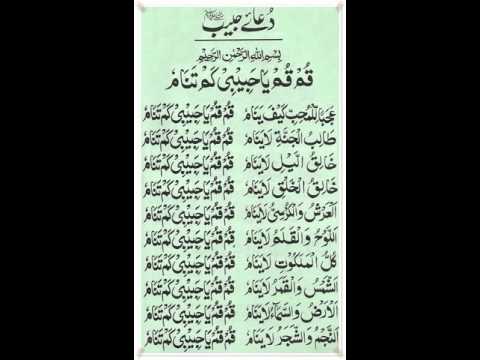 دُعائے حبیب ﷺ
بِسْمِ اللهِ الرَّحْمٰنِ الرَّحِیْمِ
قُمْ قُمْ یَا حَبِیْبِیْ کَمْ تَنَامُ
عَجَبًا لِلْمُحِبِّ کَیْفَ یَنَامُ قُمْ قُمْ یَا حَبِیْبِیْ کَمْ تَنَامُ
طَالِبُ الْجَنَّةِ لَا یَنَامُ قُمْ قُمْ یَا حَبِیْبِیْ کَمْ تَنَامُ
خَالِقُ الَّیْلِ لَا یَنَامُ قُمْ قُمْ یَا حَبِیْبِیْ کَمْ تَنَامُ
خَالِقُ الْخَلْقِ لَا یَنَامُ قُمْ قُمْ یَا حَبِیْبِیْ کَمْ تَنَامُ
اَلْعَرْشُ وَالْکُرْسِیُّ لَا یَنَامُ قُمْ قُمْ یَا حَبِیْبِیْ کَمْ تَنَامُ
اَللَّوْحُ وَالْقَلَمُ لَا یَنَامُ قُمْ قُمْ یَا حَبِیْبِیْ کَمْ تَنَامُ
کُلُّ الْمَلَکُوْتِ لَا یَنَامُ قُمْ قُمْ یَا حَبِیْبِیْ کَمْ تَنَامُ
اَلشَّمْسُ وَالْقَمَرُ لَا یَنَامُ قُمْ قُمْ یَا حَبِیْبِیْ کَمْ تَنَامُ
اَلْاَرْضُ وَالسَّمَآءُ لَا یَنَامُ قُمْ قُمْ یَا حَبِیْبِیْ کَمْ تَنَامُ
اَلنَّجْمُ وَالشَّجَرُ لَا یَنَامُ قُمْ قُمْ یَا حَبِیْبِیْ کَمْ تَنَامُ